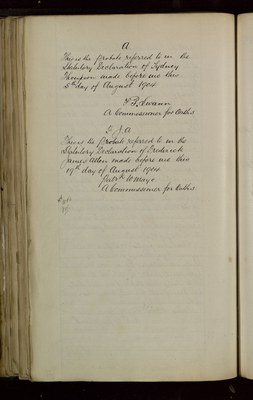 A
This is the Probate referred to in the
Statutory Declaration of Sydney
Thompson made before me this
4th day of August 1904
A Commissioner for Oaths
F. J. A
This is the Probate referred to in the
Statutory Declaration of Frederick
James Allen made before me this
19th day of August 1904
A Commissioner for Oaths